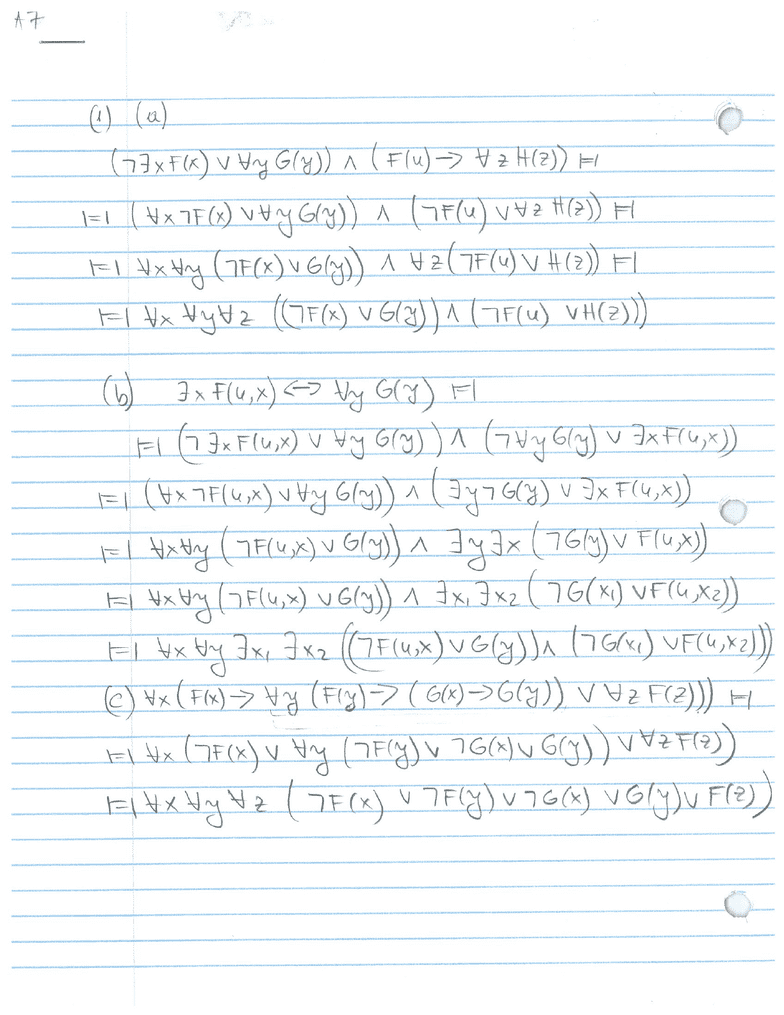 A7
(1) (a)
(¬∃xF(x) ∨ ∀y G(y)) ∧ (F(u) → ∀z H(z)) ⊨⫤
⊨⫤ (∀x¬F(x) ∨ ∀y G(y)) ∧ (¬F(u) ∨ ∀z H(z)) ⊨⫤
⊨⫤ ∀x∀y (¬F(x) ∨ G(y)) ∧ ∀z(¬F(u) ∨ H(z)) ⊨⫤
⊨⫤ ∀x ∀y∀z ((¬F(x) ∨ G(y)) ∧ (¬F(u) ∨ H(z)))
(b) ∃x F(u,x) ↔ ∀y G(y) ⊨⫤
⊨⫤ (¬∃x F(u,x) ∨ ∀y G(y)) ∧ (¬∀y G(y) ∨ ∃x F(u,x))
⊨⫤ (∀x ¬F(u,x) ∨ ∀y G(y)) ∧ (∃y¬G(y) ∨ ∃x F(u,x))
⊨⫤ ∀x∀y (¬F(u,x) ∨ G(y)) ∧ ∃y∃x (¬G(y) ∨ F(u,x))
⊨⫤ ∀x∀y (¬F(u,x) ∨ G(y)) ∧ ∃x₁ ∃x₂ (¬G(x₁) ∨ F(u,x₂))
⊨⫤ ∀x ∀y ∃x₁ ∃x₂ ((¬F(u,x) ∨ G(y)) ∧ (¬G(x₁) ∨ F(u,x₂)))
(c) ∀x (F(x) → ∀y (F(y) → (G(x) → G(y)) ∨ ∀z F(z))) ⊨⫤
⊨⫤ ∀x (¬F(x) ∨ ∀y (¬F(y) ∨ ¬G(x) ∨ G(y)) ∨ ∀z F(z))
⊨⫤ ∀x ∀y ∀z (¬F(x) ∨ ¬F(y) ∨ ¬G(x) ∨ G(y) ∨ F(z))